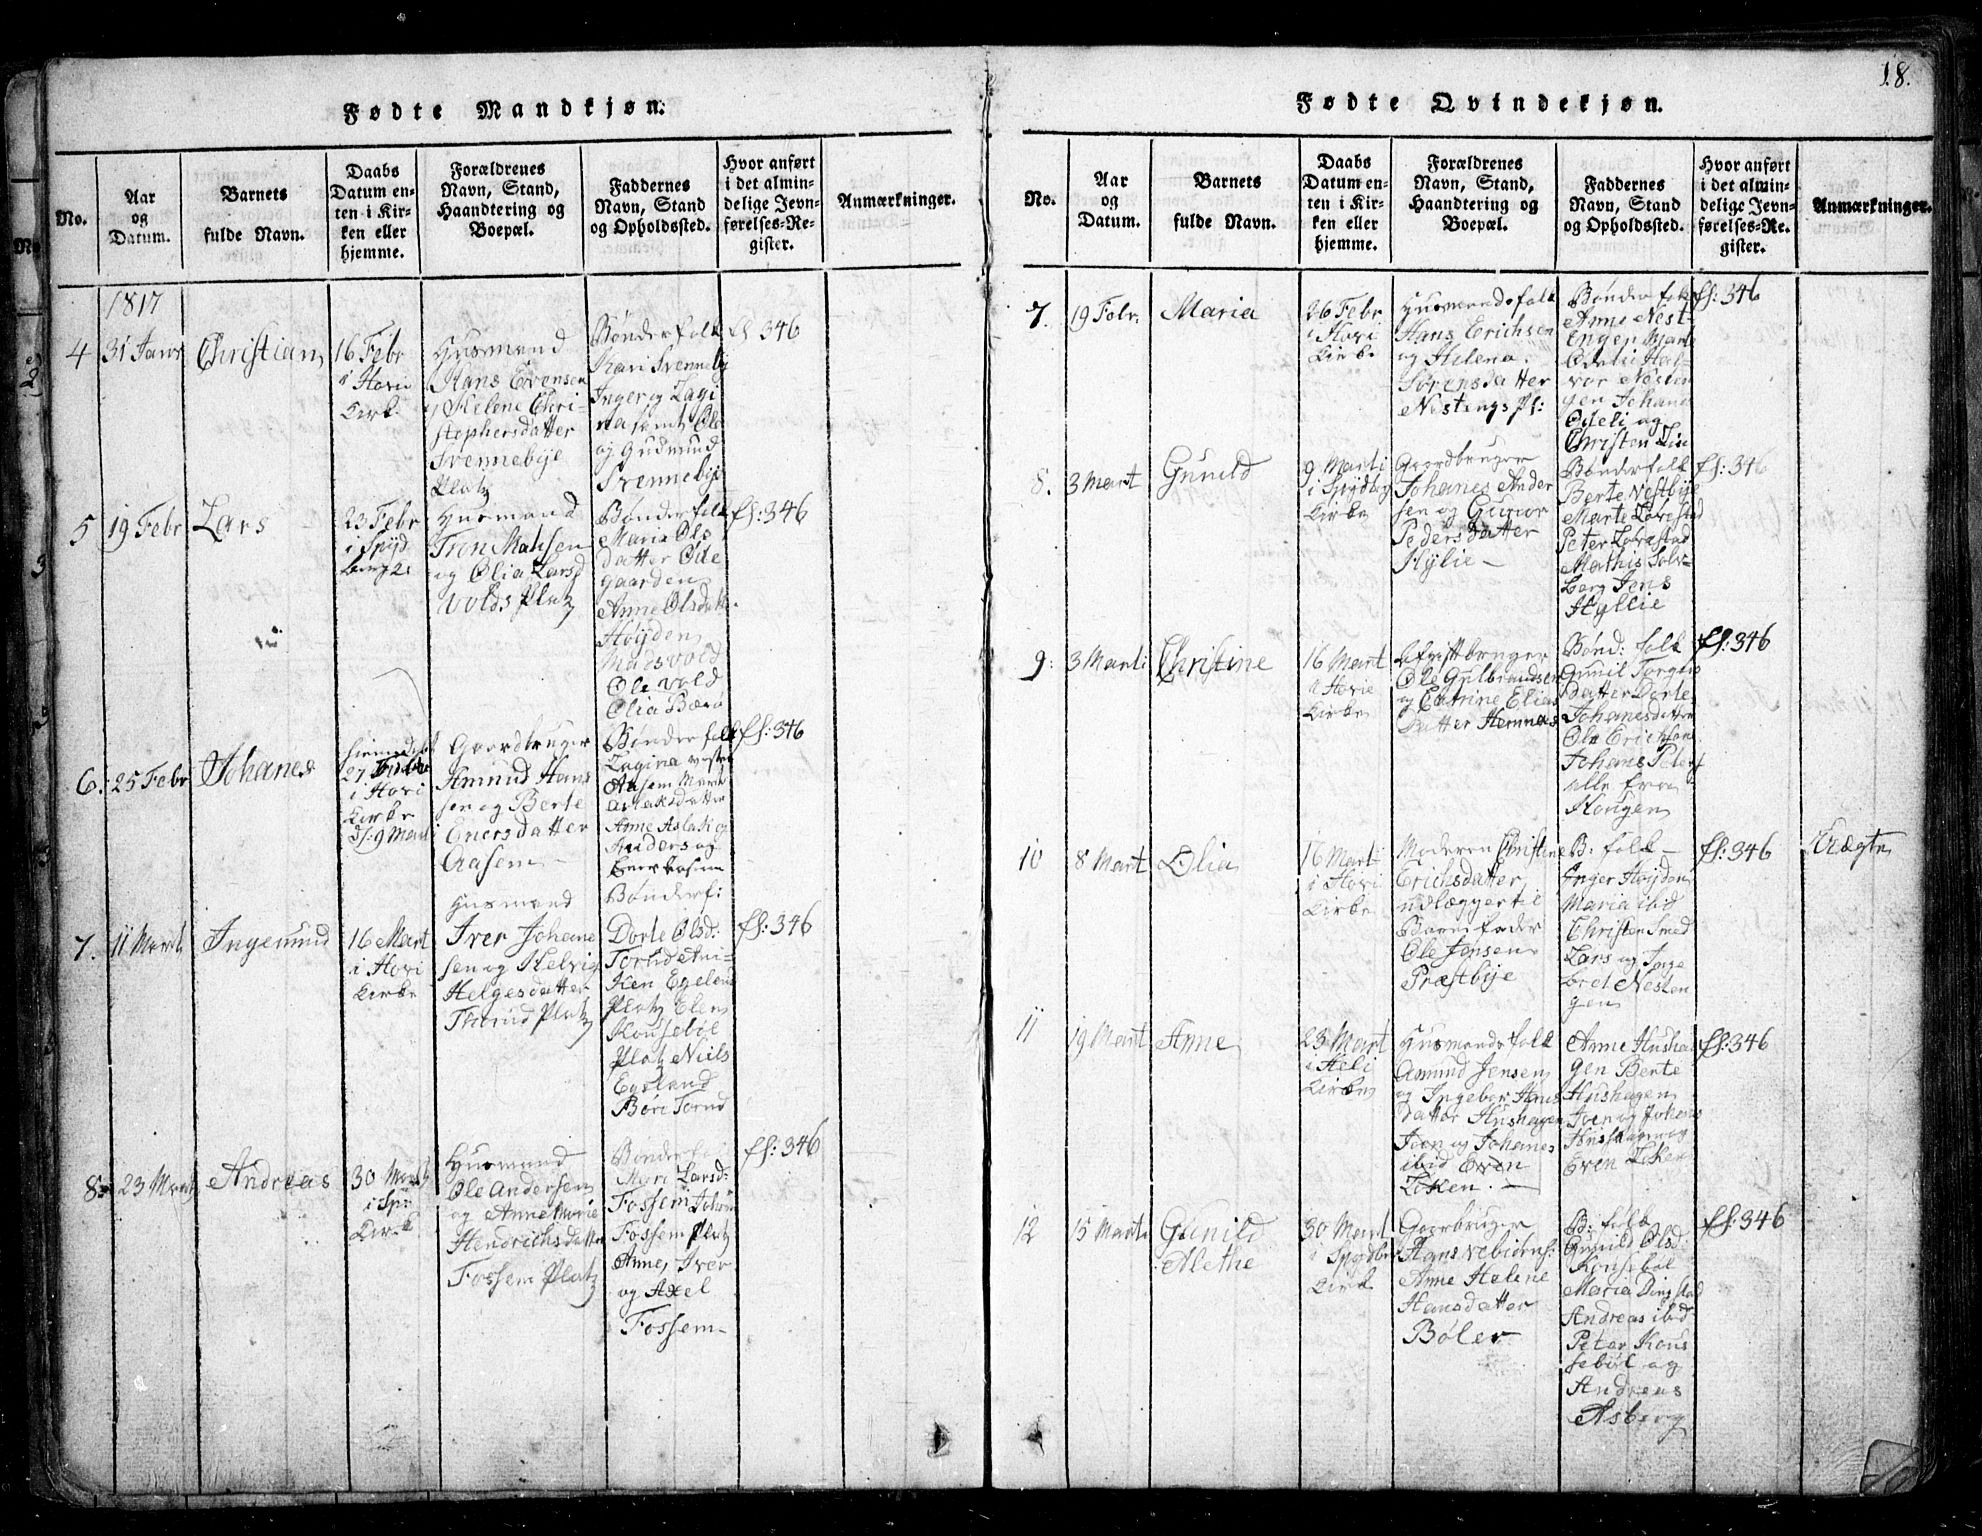 18.
Fødte Mandkjøn.
No.
Aar
og
Datum.
Barnets
fulde Navn.
Daabs
Datum en-
ten i Kir-
ken eller
hjemme.
Forældrenes
Navn, Stand,
Haandtering og
Boepæl.
Faddernes
Navn, Stand
og Opholdssted.
Hvor anført
i det almin-
delige Jevn-
førelses-Re-
gister.
Anmærkninger.
1817
4
31 Janr
Christian
16 Febr
i Hovi
Kirke
Husmand
Hans Evensen
og Helene Chri-
stophersdatter
Svennebye
Platz
Bønderfolk
Kari Svenneby
Inger og Lagi
na samt Ole
og Gudmund
Svennebye
fl 346
5
19 Febr
Lars
23 Febr
i Spyd
berg
Husmand
Tron Matsen
og Olia Larsd
Volds Platz
Bønderfolk
Maria Ols
datter Øde
gaarden
Anne Olsdatt
Høyden
Mads vold
Ole vold
Olia Bærø
fl: 346
6.
25 Febr
Johanes
27 Febr
i Hovi
Kirke
d. 9 Marti
Gaardbruger
Amund Hans
sen og Berte
Enersdatter
Aasem
Bønderfolk
Lagina vestre
Aasem Mari
Aslaksdatter
Anne Aslak og
Anders og
Ener Aasem
fl: 346
7.
11 Marti
Ingemund
16 Mart
i Hovi
Kirke
Husmand
Iver Johane
sen og Helvig
Helgesdatter
Thorud Platz
Bønderf:
Dorte Olsd:
Torud Ani-
ken Egelund
Platz Elen
Kousebøl
Platz Niels
Egeland
Børe Torud
fl: 346
8.
23 Marti
Andreas
30 Marti
i Sp:
Kirke
Husmand
Ole Andersen
og Anne Marie
Hendrichsdatter
Fossem Platz
Bønderfo
Mari Larsd:
Fossem Johan
Fossem Platz
Anne, Iver
og Axel
Fossem
fl: 346
Fødte Qvindekjøn.
No.
Aar
og
Datum.
Barnets
fulde Navn.
Daabs
Datum en-
ten i Kir-
ken eller
hjemme.
Forældrenes
Navn, Stand,
Haandtering og
Boepæl.
Faddernes
Navn, Stand
og Opholdssted.
Hvor anført
i det almin-
delige Jevn-
førelses-Re-
gister.
Anmærkninger.
7.
19 Febr.
Maria
26 Febr
i Hovi
Kirke
Husmandsfolk
Hans Erichsen
og Helena
Sørensdatter
Nestengs Pl:
Bønderfolk
Anne Nest
Engen Marte
Odeli Hal-
vor Nesten
gen Johans
Odeli og
Christen Lin
fl: 346
8.
3 Mart
Gunild
9 Marti
i Spydbrg
Kirke
Gaardbruger
Johanes Ander
sen og Guror
Pedersdatter
Hylie
Bønderfolk
Berte Vestbye
Marte Løvestad
Peter Løvestad
Mathis Solv-
berg Jens
Hyllie
fl: 346
9:
3 Marti
Christine
16 Mart
i Hovie
Kirke
Ole Gulbrandsen
og Catrine Elias
datter Hemnæs
Bønd: folk
Gunil Torgers
datter Dorte
Johanesdatter
Ole Erichsen
Johans Peters
alle fra
Hougen
fl: 346
10
8 Mart
Olia
16 Marti
i Hovi
Kirke
Moderen Christine
Erichsdatter
udlægger til
Barnefader
Ole Jensen
Præstbye
B: folk
Inger Høyden
Maria ibid
Christen Smed
Lars og Inge
bret Nesten
gen
fl: 346
Uægte
11
19 Mart
Anne
23 Mart
i Heli
Kirke
Husmandsfolk
Asmund Jensen
og Ingebor Hans
datter Hushagen
Joon og Johanes
ibid Even
Løken.
Anne Husha
gen Berte
Hushagen
Iver og Johans
Hushagen og
Even Løken
fl: 346
12
15 Marti
Gunild
Alethe
30 Mart
i Spydbrg
Kirke
Gaarbruger
Hans Vebiørns:
Anne Helene
Hansdatter
Bøler
B: folk
Gunild Olsd:
Konsebøl
Maria Dingstad
Andreas ibid
Peter Kous
sebøl og
Andreas
Asberg
fl: 346